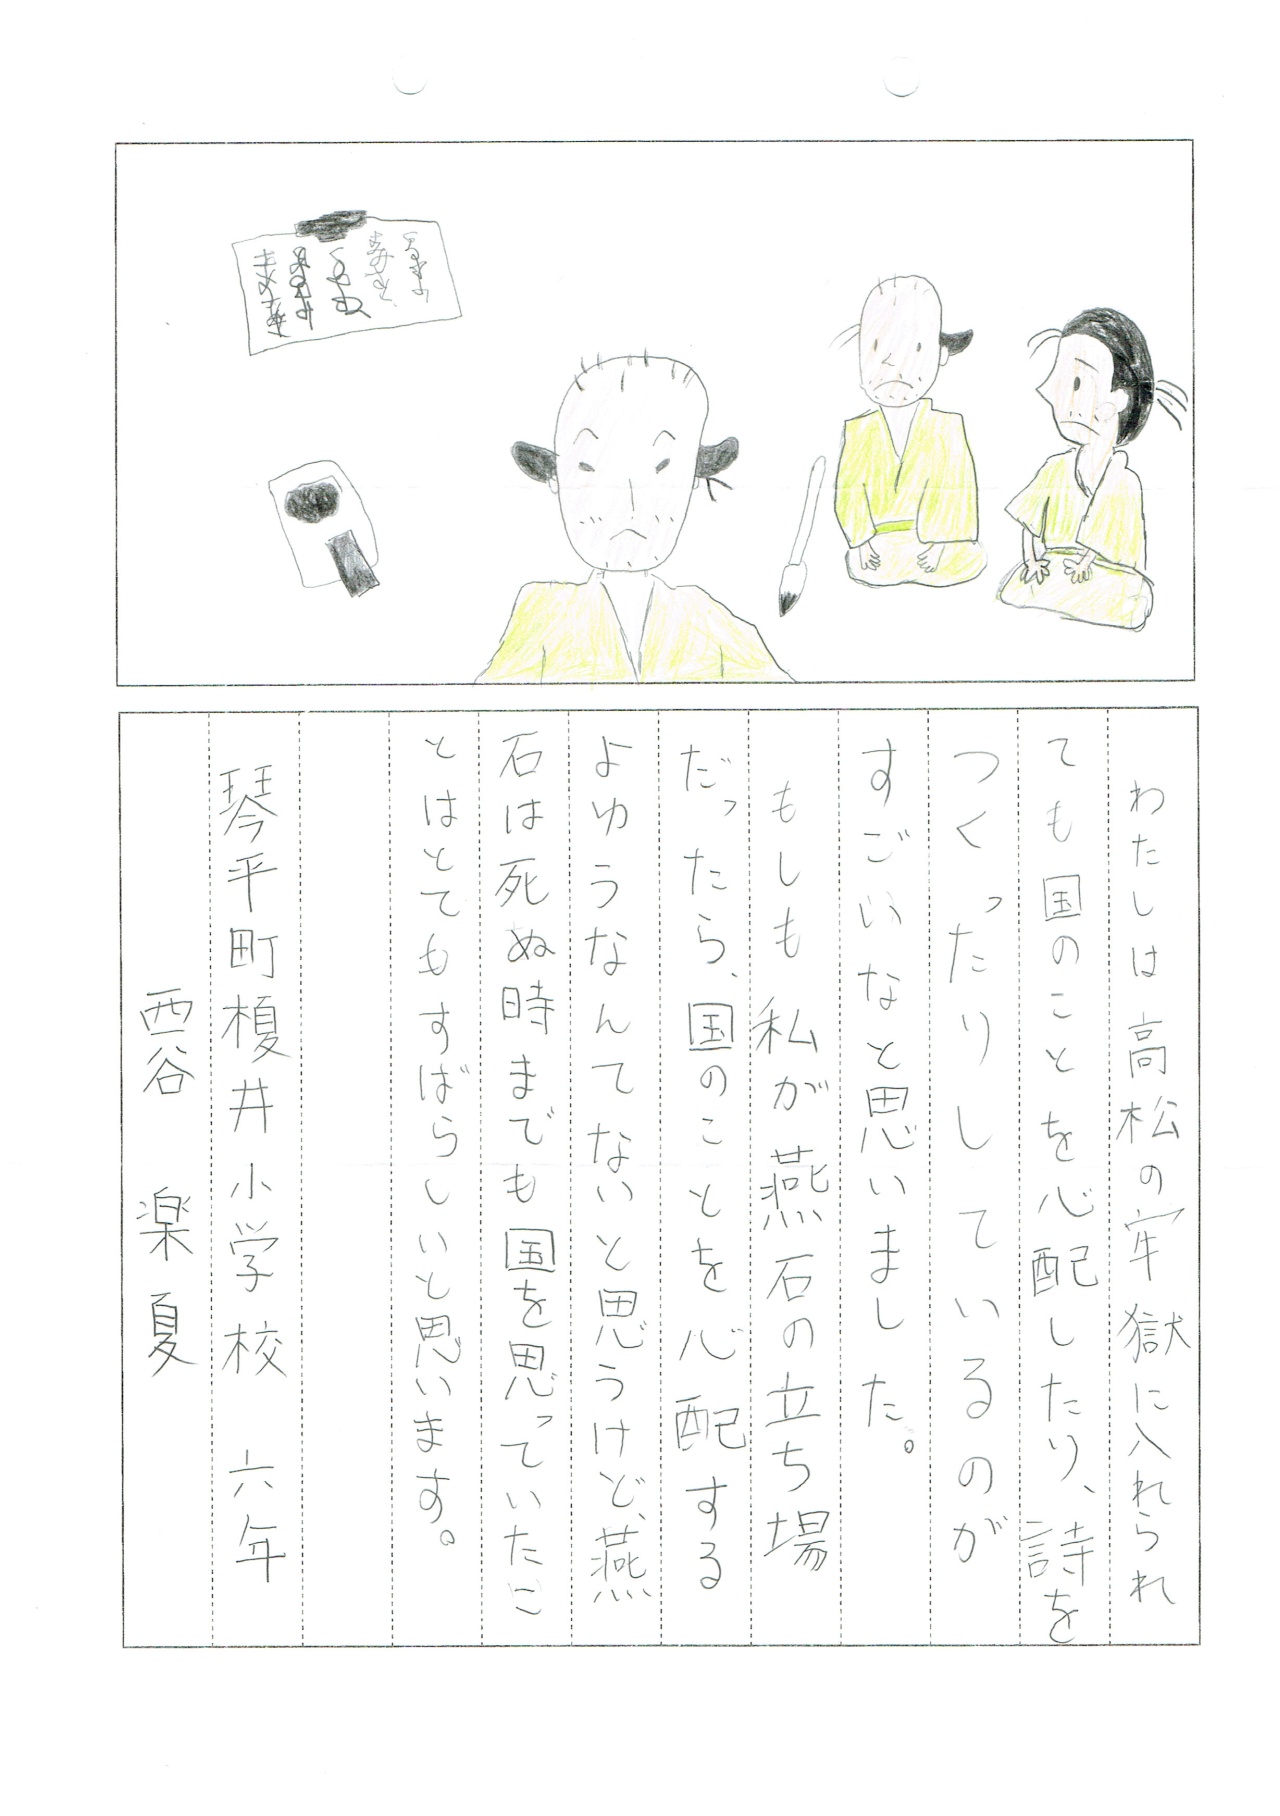 わたしは高松の牢獄に入れられ
ても国のことを心配したり、詩を
つくったりしているのが
すごいなと思いました。
もしも私が燕石の立ち場
だったら、国のことを心配する
よゆうなんてないと思うけど、燕
石は死ぬ時までも国を思っていたこ
とはとてもすばらしいと思います。
琴平町榎井小学校 六年
西谷 楽夏